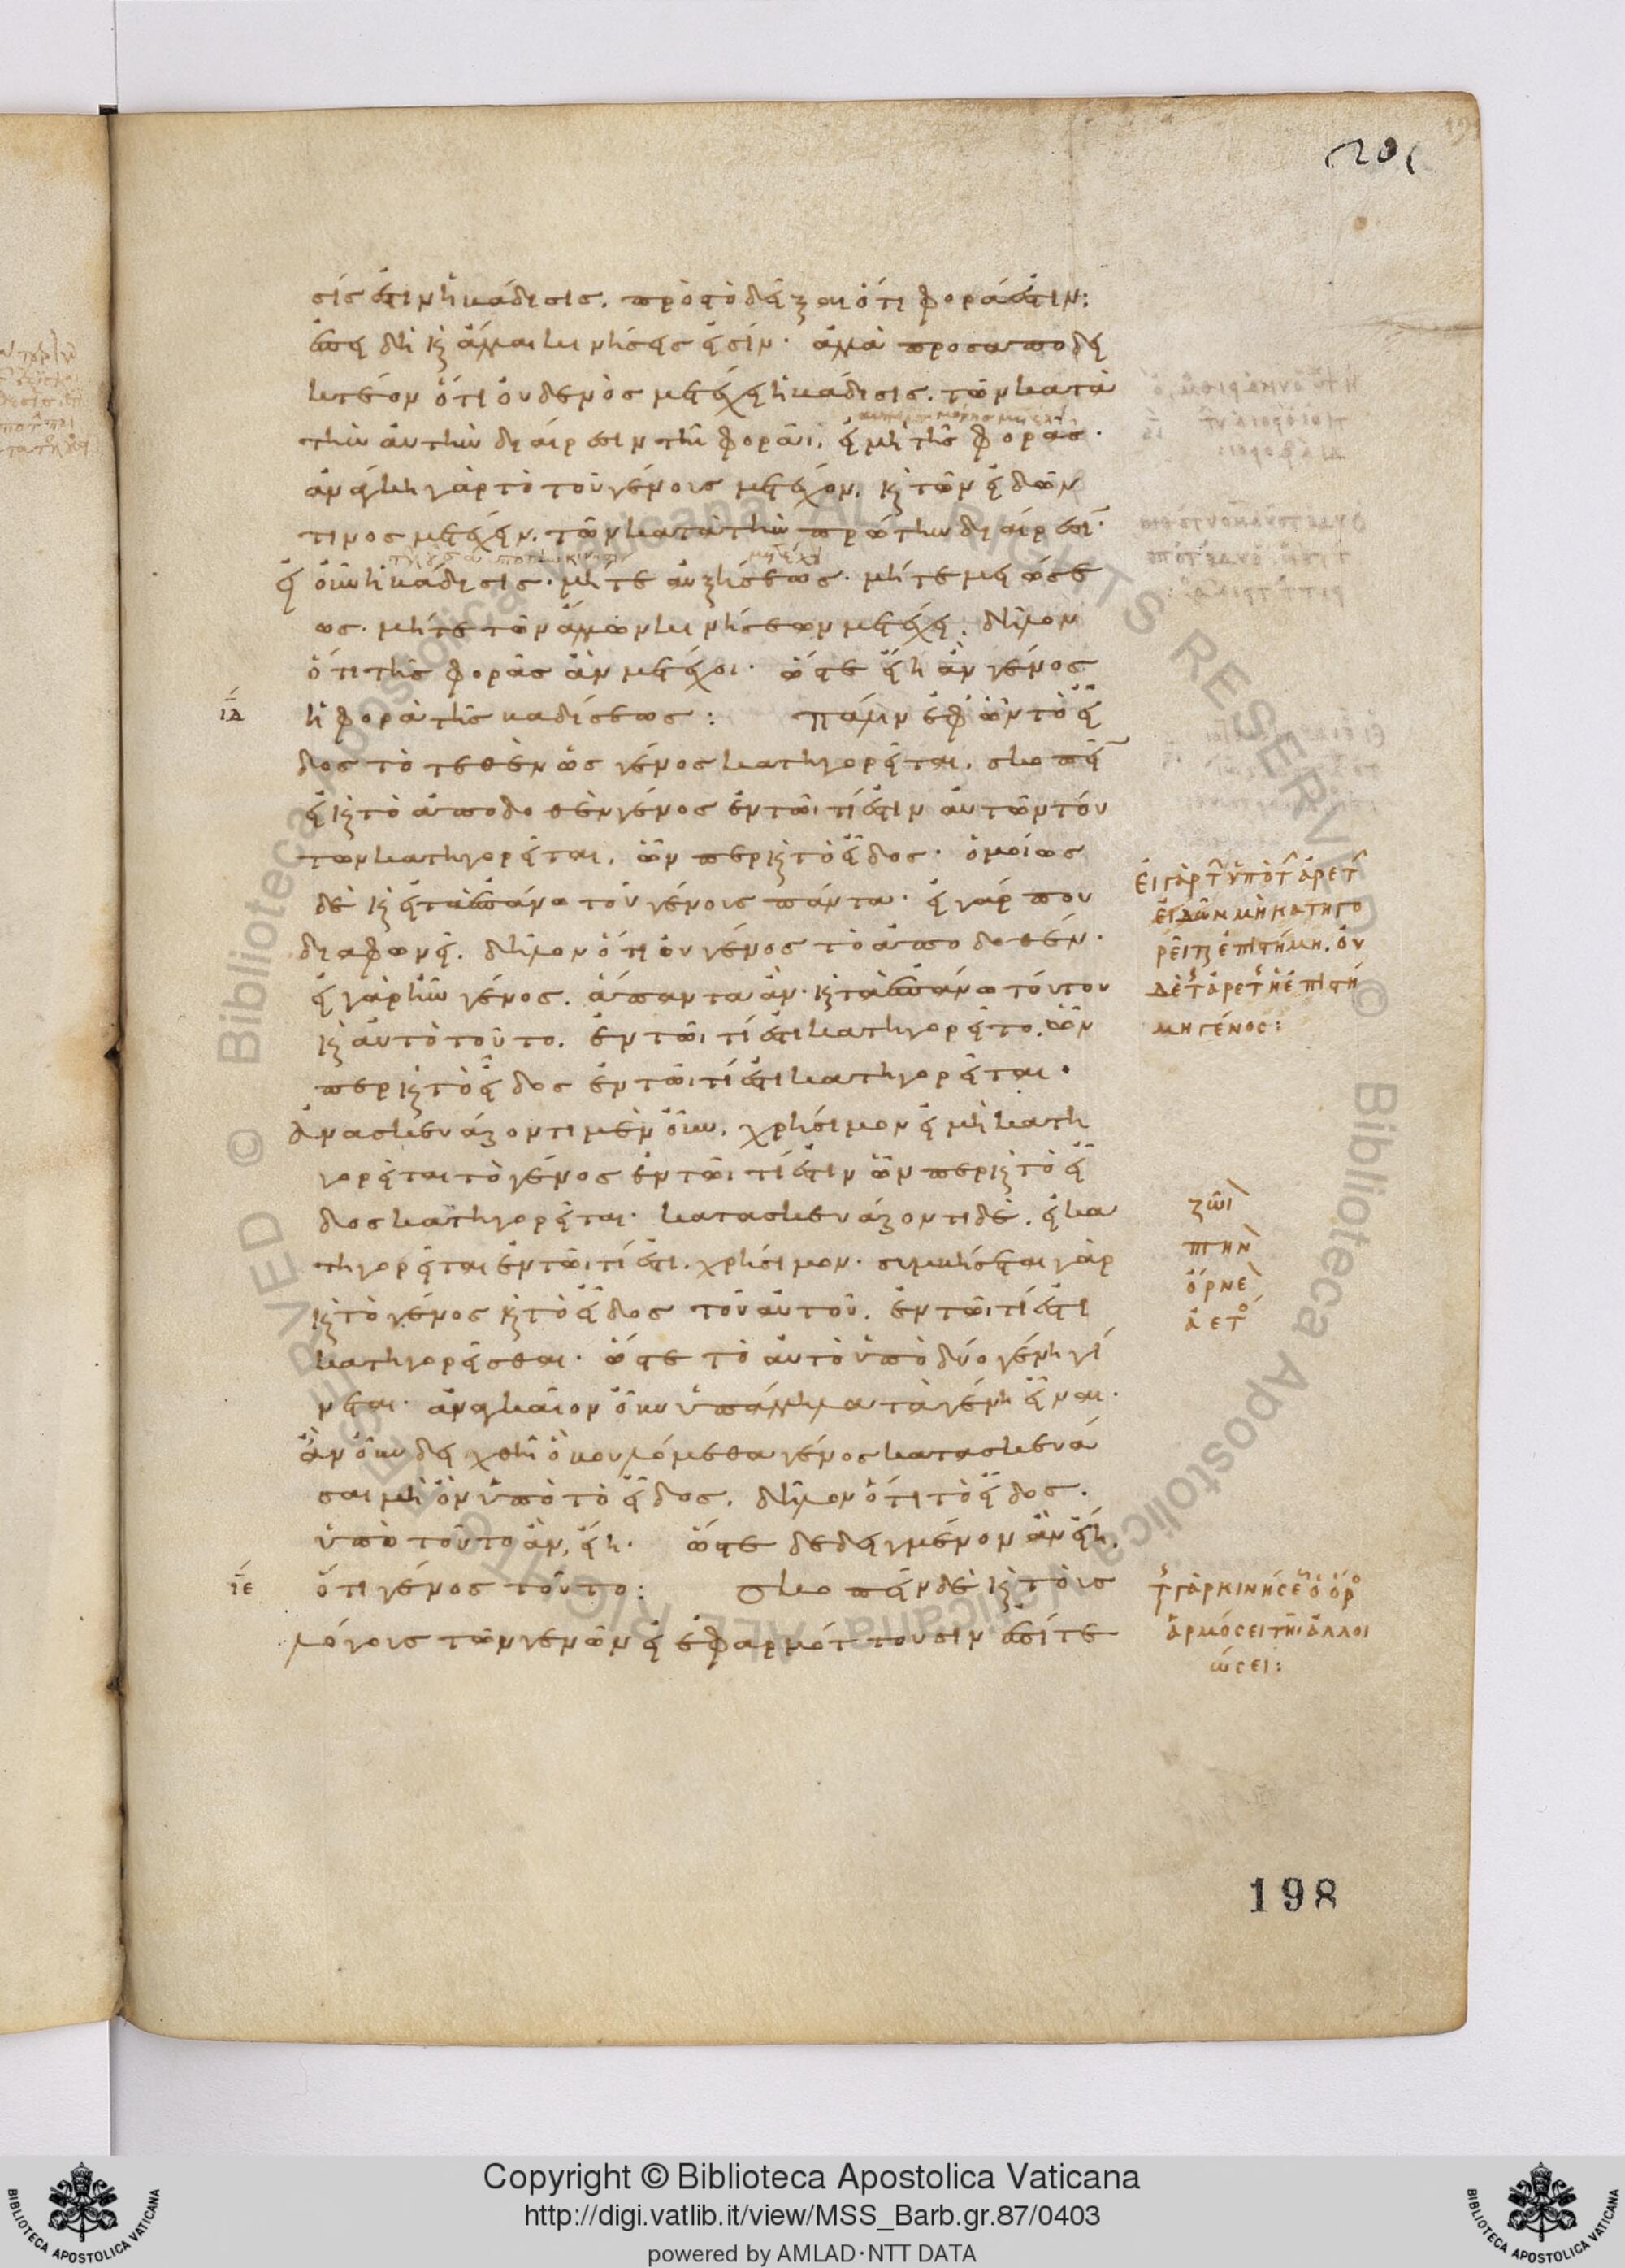 σίς ἐστιν ἡ βάδισις. πρὸς τὸ δεῖξαι ὅτι φορά ἐστιν:
ἐπεὶ δὴ καὶ ἄλλαι κινήσεις εἰσίν· ἀλλὰ προσαποδει
κτέον ὅτι οὐδενὸς μετέχει ἡ βάδισις. τῶν κατὰ
τὴν αὐτὴν διαίρεσιν τῆι φορᾶι. εἰ μὴ τῆς φορᾶς·
ἀνάγκη γὰρ τὸ τοῦ γένους μετέχον. καὶ τῶν εἰδῶν
τινος μετέχειν. τῶν κατὰ τὴν πρώτην διαίρεσιν·
εἰ οὖν ἡ βάδισις· μήτε αὐξήσεως· μήτε μειώσε
ως· μήτε τῶν ἄλλων κινήσεων μετέχει. δῆλον
ὅτι τῆς φορᾶς ἂν μετέχοι· ὥστε εἴη ἂν γένος
ιδ ἡ φορὰ τῆς βαδίσεως: πάλιν ἐφ ὧν τὸ εἶ
δος τὸ τεθὲν ὡς γένος κατηγορεῖται. σκοπεῖν
εἰ καὶ τὸ ἀποδοθὲν γένος ἐν τῶι τί ἐστιν αὐτῶν τού
των κατηγορεῖται. ὧν περ καὶ τὸ εἶδος· ὁμοίως
δὲ καὶ εἰ τὰ ἐπάνω τοῦ γένους πάντα· εἰ γάρ που
διαφωνεῖ. δῆλον ὅτι οὐ γένος τὸ ἀποδοθέν·
εἰ γὰρ ἦν γένος. ἅπαντα ἂν· καὶ τὰ ἐπάνω τούτου
καὶ αὐτὸ τοῦτο. ἐν τῶι τί ἐστι κατηγορεῖτο. ὧν
περ καὶ τὸ εἶδος ἐν τῶι τί ἐστι κατηγορεῖται·
ἀνασκευάζοντι μὲν οὖν. χρήσιμον εἰ μὴ κατη
γορεῖται τὸ γένος ἐν τῶι τί ἐστιν ὧν περ καὶ τὸ εἶ
δος κατηγορεῖται· κατασκευάζοντι δὲ. εἰ κα
τηγορεῖται ἐν τῶι τί ἐστι. χρήσιμον· συμβήσεται γὰρ
καὶ τὸ γένος καὶ τὸ εἶδος τοῦ αὐτοῦ. ἐν τῶι τί ἐστι
κατηγορεῖσθαι· ὥστε τὸ αὐτὸ ὑπὸ δύο γένη γί
νεται· ἀναγκαῖον οὖν ὑπάλληλα τὰ γένη εἶναι·
ἂν οὖν δειχθῆ ὃ βουλόμεθα γένος κατασκευά
σαι μὴ ὂν ὑπὸ τὸ εἶδος. δῆλον ὅτι τὸ εἶδος·
ὑπὸ τοῦτο ἂν, εἴη· ὥστε δεδειγμένον ἂν εἴη.
ιε ὅτι γένος τοῦτο: σκοπεῖν δὲ καὶ τοὺς
λόγους τῶν γενῶν εἰ ἐφαρμόττουσιν ἐπί τε
εἰ γὰρ τ ὑπὸ τ ἀρετ
εἰδῶν μὴ κατηγο
ρεῖται ἡ ἐπιστήμη. οὐ
δὲ τ ἀρετ ἡ ἐπιστή
μη γένος:
ζῶι
πτην
ὄρνε
ἀετο
γὰρ κινήσε ὁ ὅρο
ἁρμόσει τῆι ἀλλοι
ώσει:
201
198
Copyright © Biblioteca Apostolica Vaticana
http://digi.vatlib.it/view/MSS_Barb.gr.87/0403
powered by AMLAD·NTT DATA